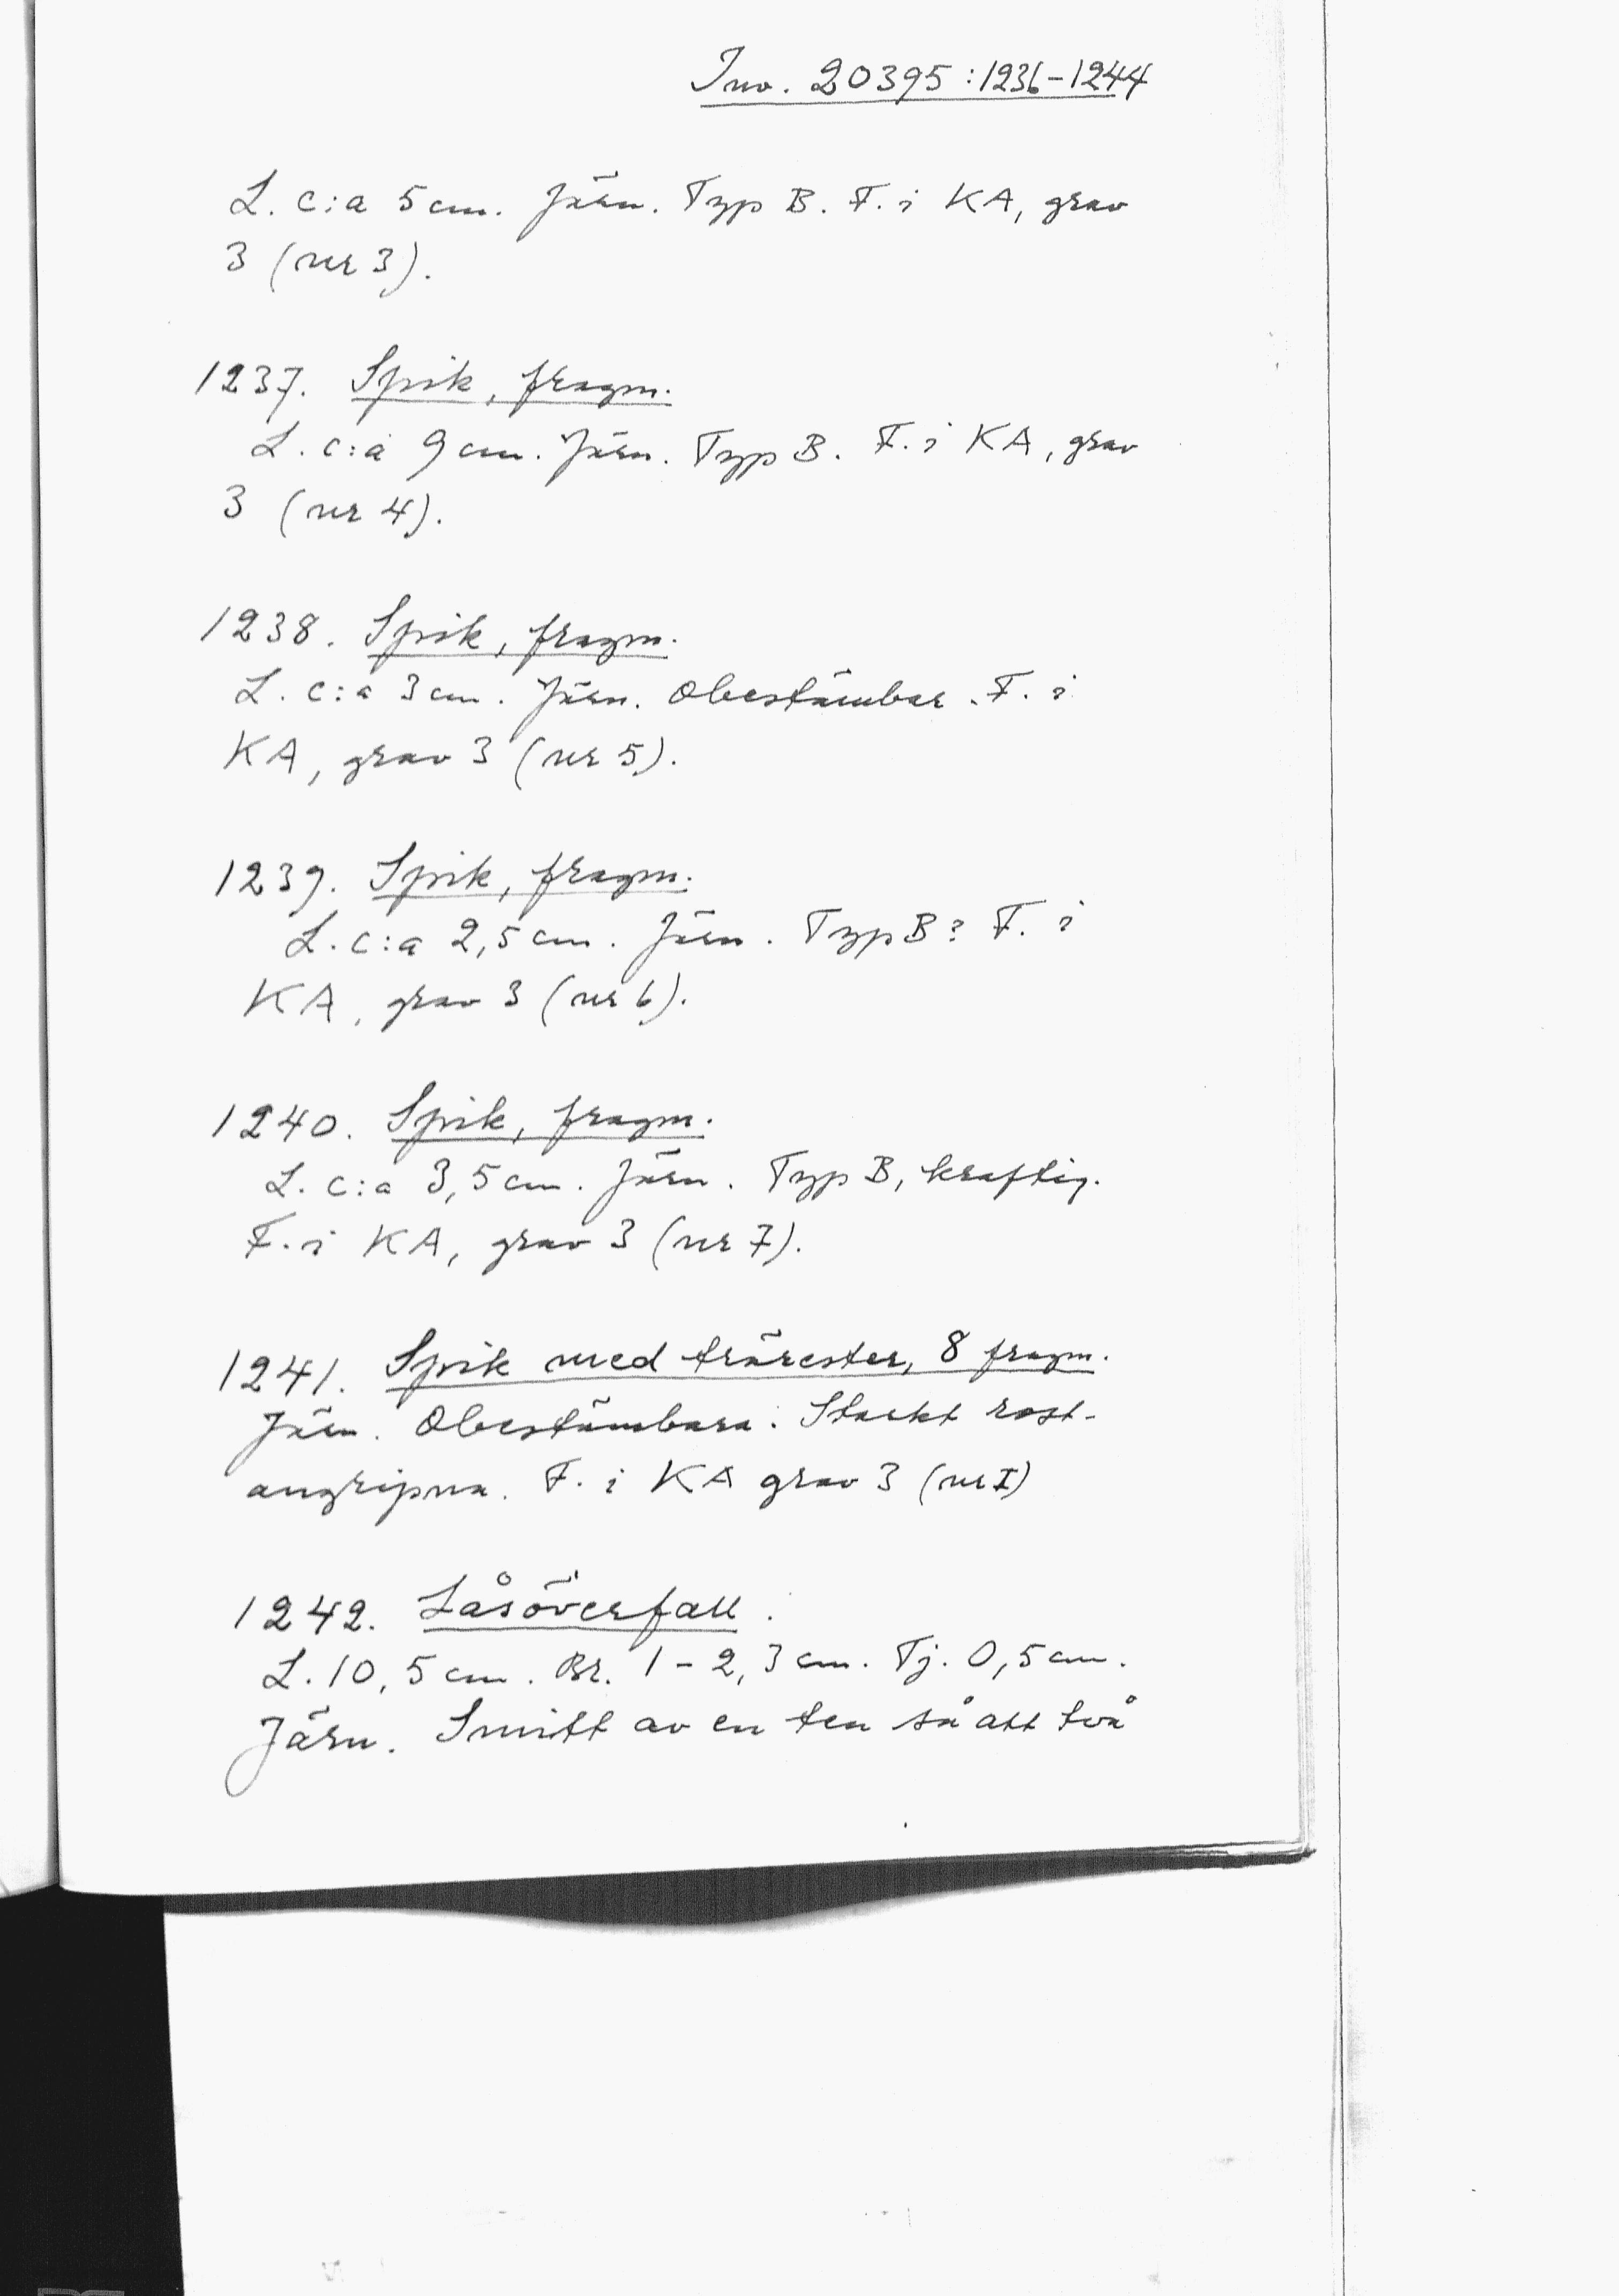 Inv. 20395:1236-1244
L. c:a 5 cm. Järn. Typ B. F. i KA, grav
3 (nr 3).
1237. Spik, fragm.
L. c:a 9 cm. Järn. Typ B. F. i KA, grav
3 (nr 4).
1238. Spik, fragm.
L. c:a 3 cm. Järn. Obestämbar. F. i
KA, grav 3 (nr 5).
1239. Spik, fragm.
L. c:a 2,5 cm. Järn. Typ B? F. i
KA, grav 3 (nr 6).
1240. Spik, fragm.
L. c:a 3,5 cm. Järn. Typ B, kraftig.
F. i KA, grav 3 (nr 7).
1241. Spik med trärester, 8 fragm.
Järn. Obestämbara. Starkt rost-
angripna. F. i KA grav 3 (nr I)
1242. Låsöverfall.
L. 10,5 cm. Br. 1-2,3 cm. Tj. 0,5 cm.
Järn. Smitt av en ten så att två